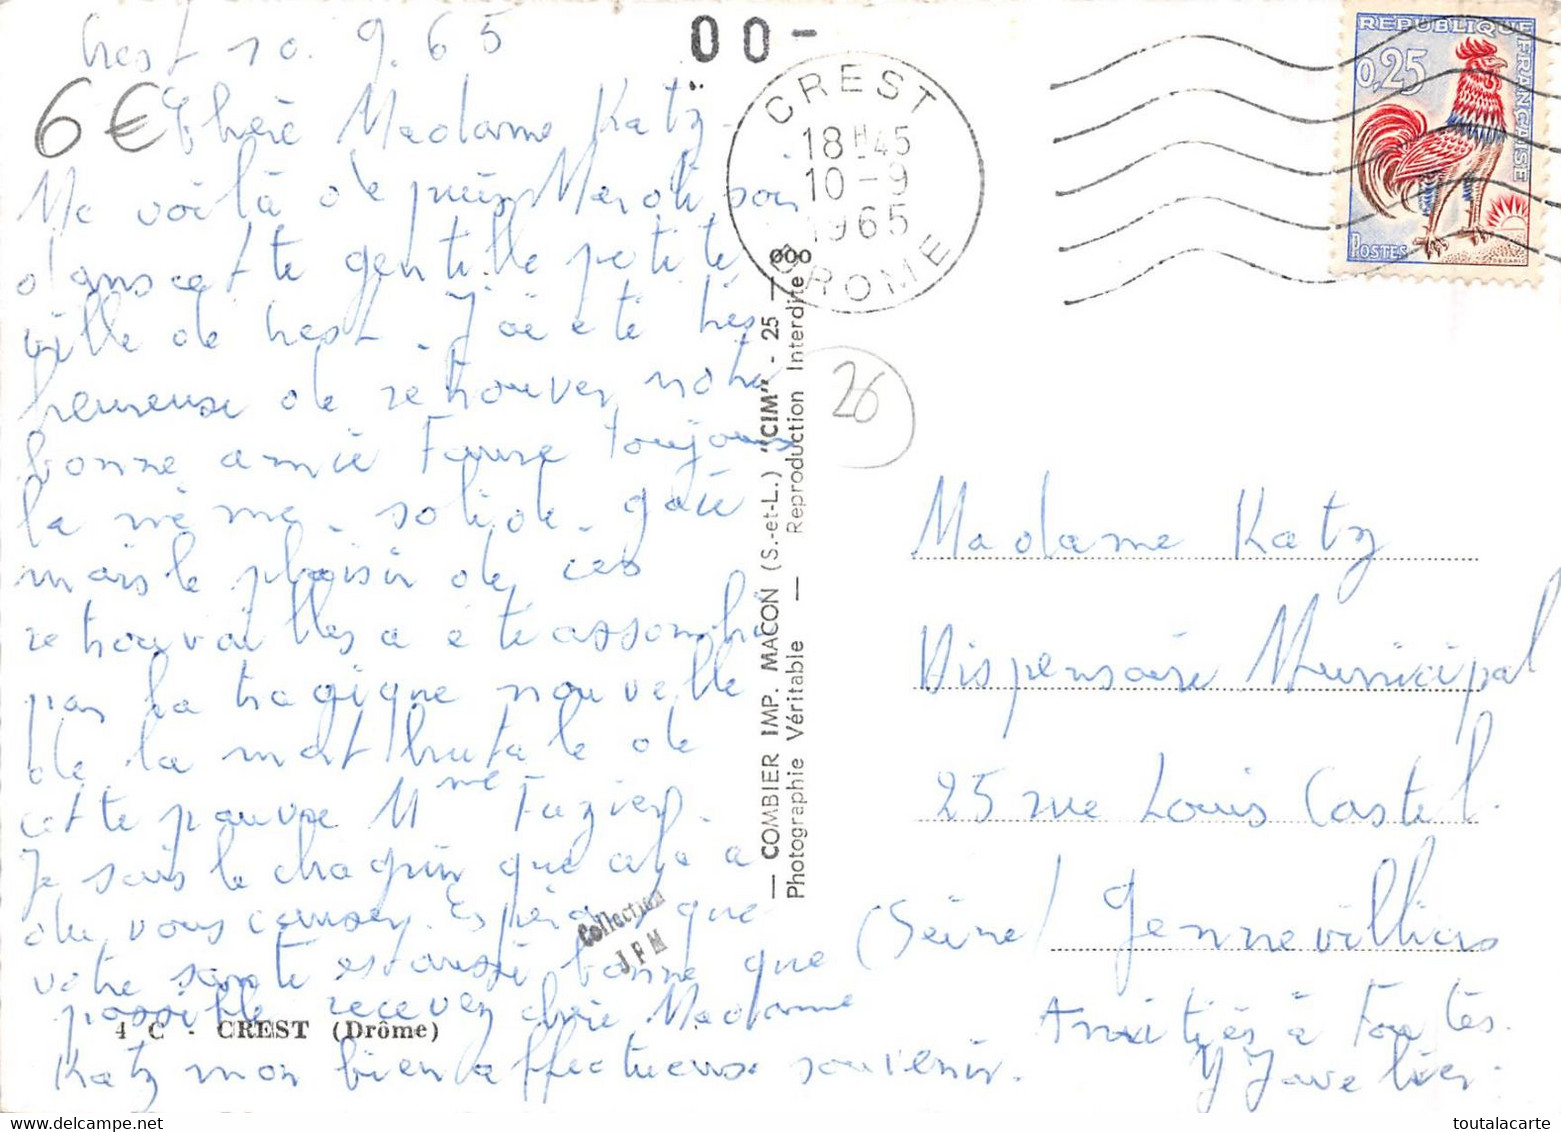 Crest 10.9.65
6€ Chère Madame Katz
Me voilà depuis Mardi soir
dans cette gentille petite
ville de Crest. J'ai été très
heureuse de retrouver notre
bonne amie Faure toujours
la même. solide. gaie
mais le plaisir de ces
retrouvailles a été assombri
par la tragique nouvelle
de la mort brutale de
cette pauvre Mme Fuzier.
Je sais le chagrin que cela a
dû vous causer. Espérant que
votre santé est aussi bonne que
possible recevez chère Madame
Katz mon bien affectueux souvenir.
4 C - CREST (Drôme)
Collection
J F M
— COMBIER IMP. MACON (S.-et-L.) "CIM" - 25 —
Photographie Véritable — Reproduction Interdite
00-
CREST
18H45
10-9
1965
DROME
REPUBLIQUE FRANÇAISE
0,25
POSTES
26
Madame Katz
Dispensaire Municipal
25 rue Louis Castel.
(Seine) Gennevilliers
Amitiés à Toutes.
Y Javelier.
toutalacarte